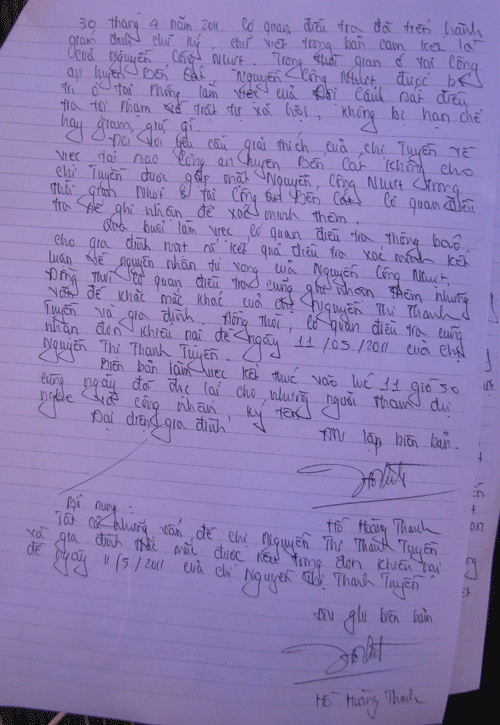 30 tháng 4 năm 2011. Cơ quan điều tra đã tiến hành
giám định chữ ký, chữ viết trong bản cam kết là
của Nguyễn Công Nhựt. Trong thời gian ở tại Công
an huyện Bến Cát Nguyễn Công Nhựt được bố
trí ở tại phòng làm việc của Đội Cảnh sát điều
tra tội phạm về trật tự xã hội, không bị hạn chế
hay giam, giữ gì.
Đối với yêu cầu giải thích của chị Tuyền về
việc tại sao Công an huyện Bến Cát không cho
chị Tuyền được gặp mặt Nguyễn Công Nhựt trong
thời gian Nhựt ở tại Công an Bến Cát. Cơ quan điều
tra sẽ ghi nhận để xác minh thêm.
Qua buổi làm việc cơ quan điều tra thông báo
cho gia đình nắm rõ kết quả điều tra xác minh kết
luận về nguyên nhân tử vong của Nguyễn Công Nhựt.
Đồng thời cơ quan điều tra cũng ghi nhận thêm những
vấn đề khác mắc khác của chị Nguyễn Thị Thanh
Tuyền và gia đình. Đồng thời, cơ quan điều tra cũng
nhận đơn khiếu nại đề ngày 11/05/2011 của chị
Nguyễn Thị Thanh Tuyền.
Biên bản làm việc kết thúc vào lúc 11 giờ 50
cùng ngày đã đọc lại cho những người tham dự
nghe và công nhận, ký tên
Đại diện gia đình
ĐTV lập biên bản.
Hồ Hoàng Thanh
Bổ sung:
Tất cả những vấn đề chị Nguyễn Thị Thanh Tuyền
và gia đình thắc mắc được nêu trong đơn khiếu nại
đề ngày 11/5/2011 của chị Nguyễn Thị Thanh Tuyền
ĐTV ghi biên bản
Hồ Hoàng Thanh